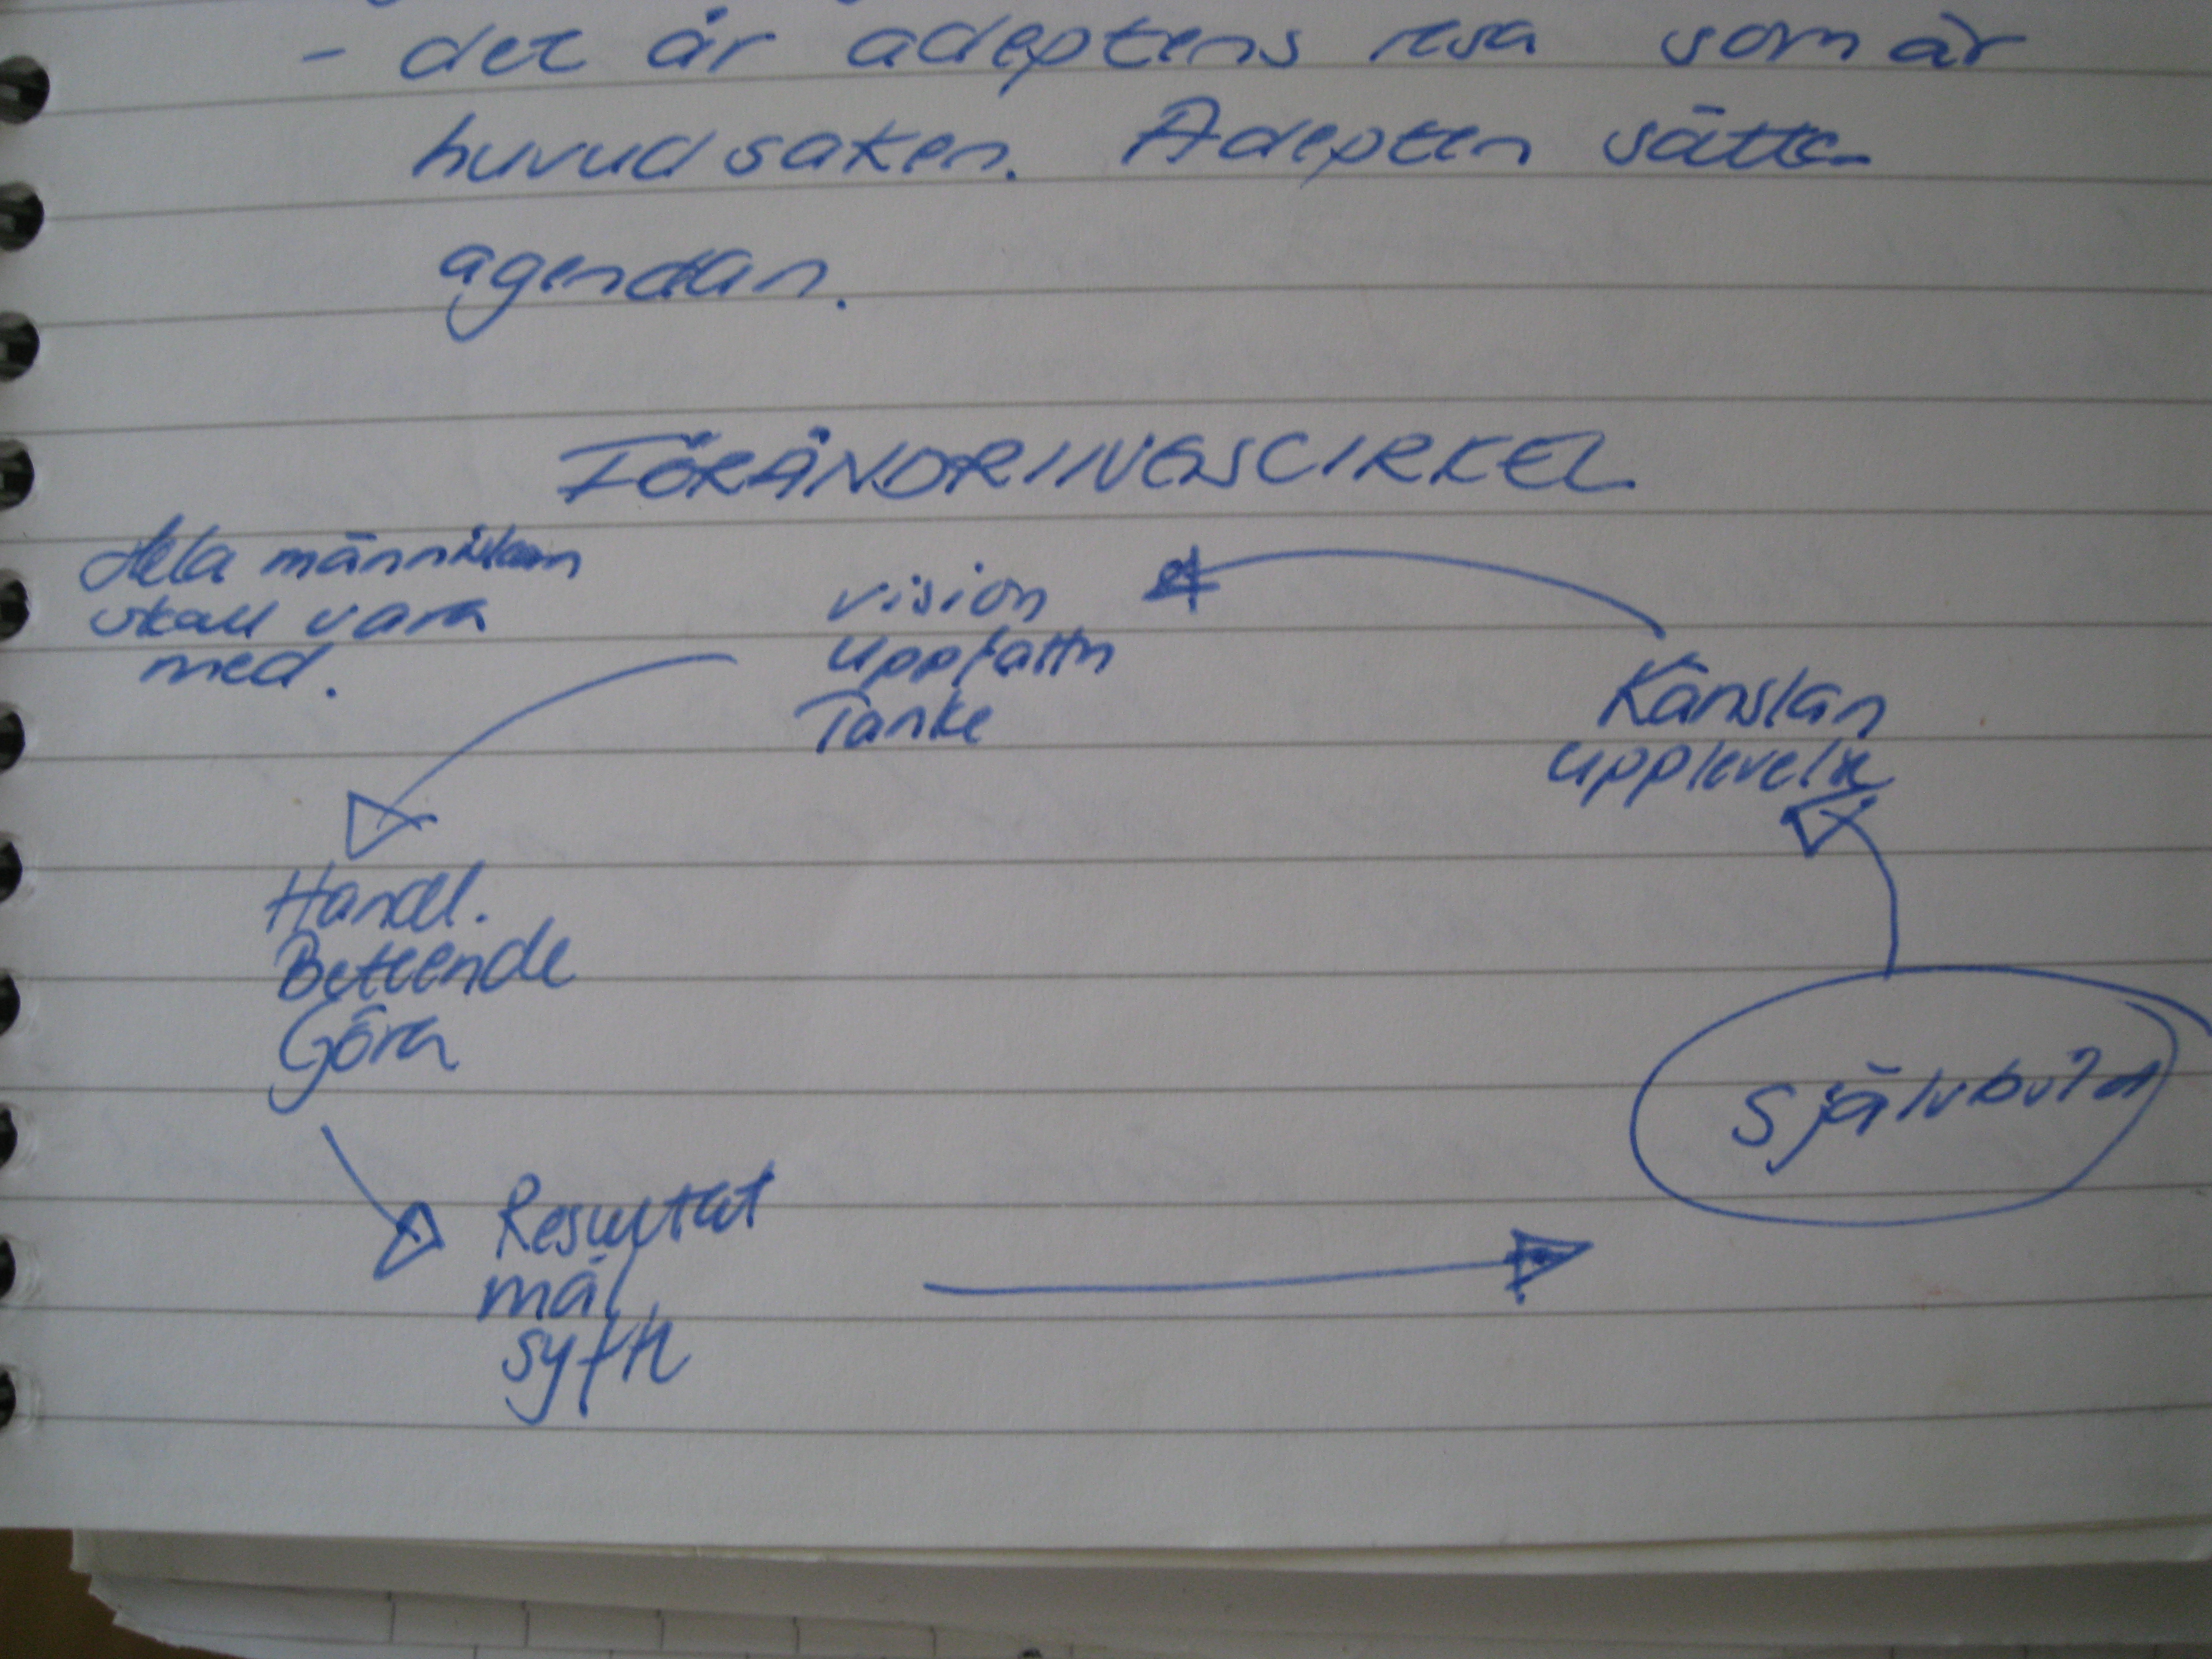 - det är adeptens resa som är
huvudsaken. Adepten sätter
agendan.
FÖRÄNDRINGSCIRKEL
Hela människan
skall vara
med.
vision
uppfattn
Tanke
Känslan
upplevelse
Handl.
Beteende
Göra
Självbild
Resultat
mål
syfte